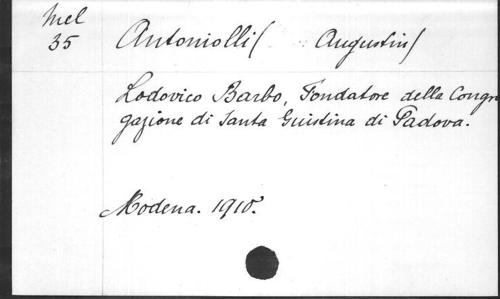 Mel
35
Antoniolli ( Augustin)
Lodovico Barbo, Fondatore della Congre
gazione di Santa Guistina di Padova.
Modena. 1910.